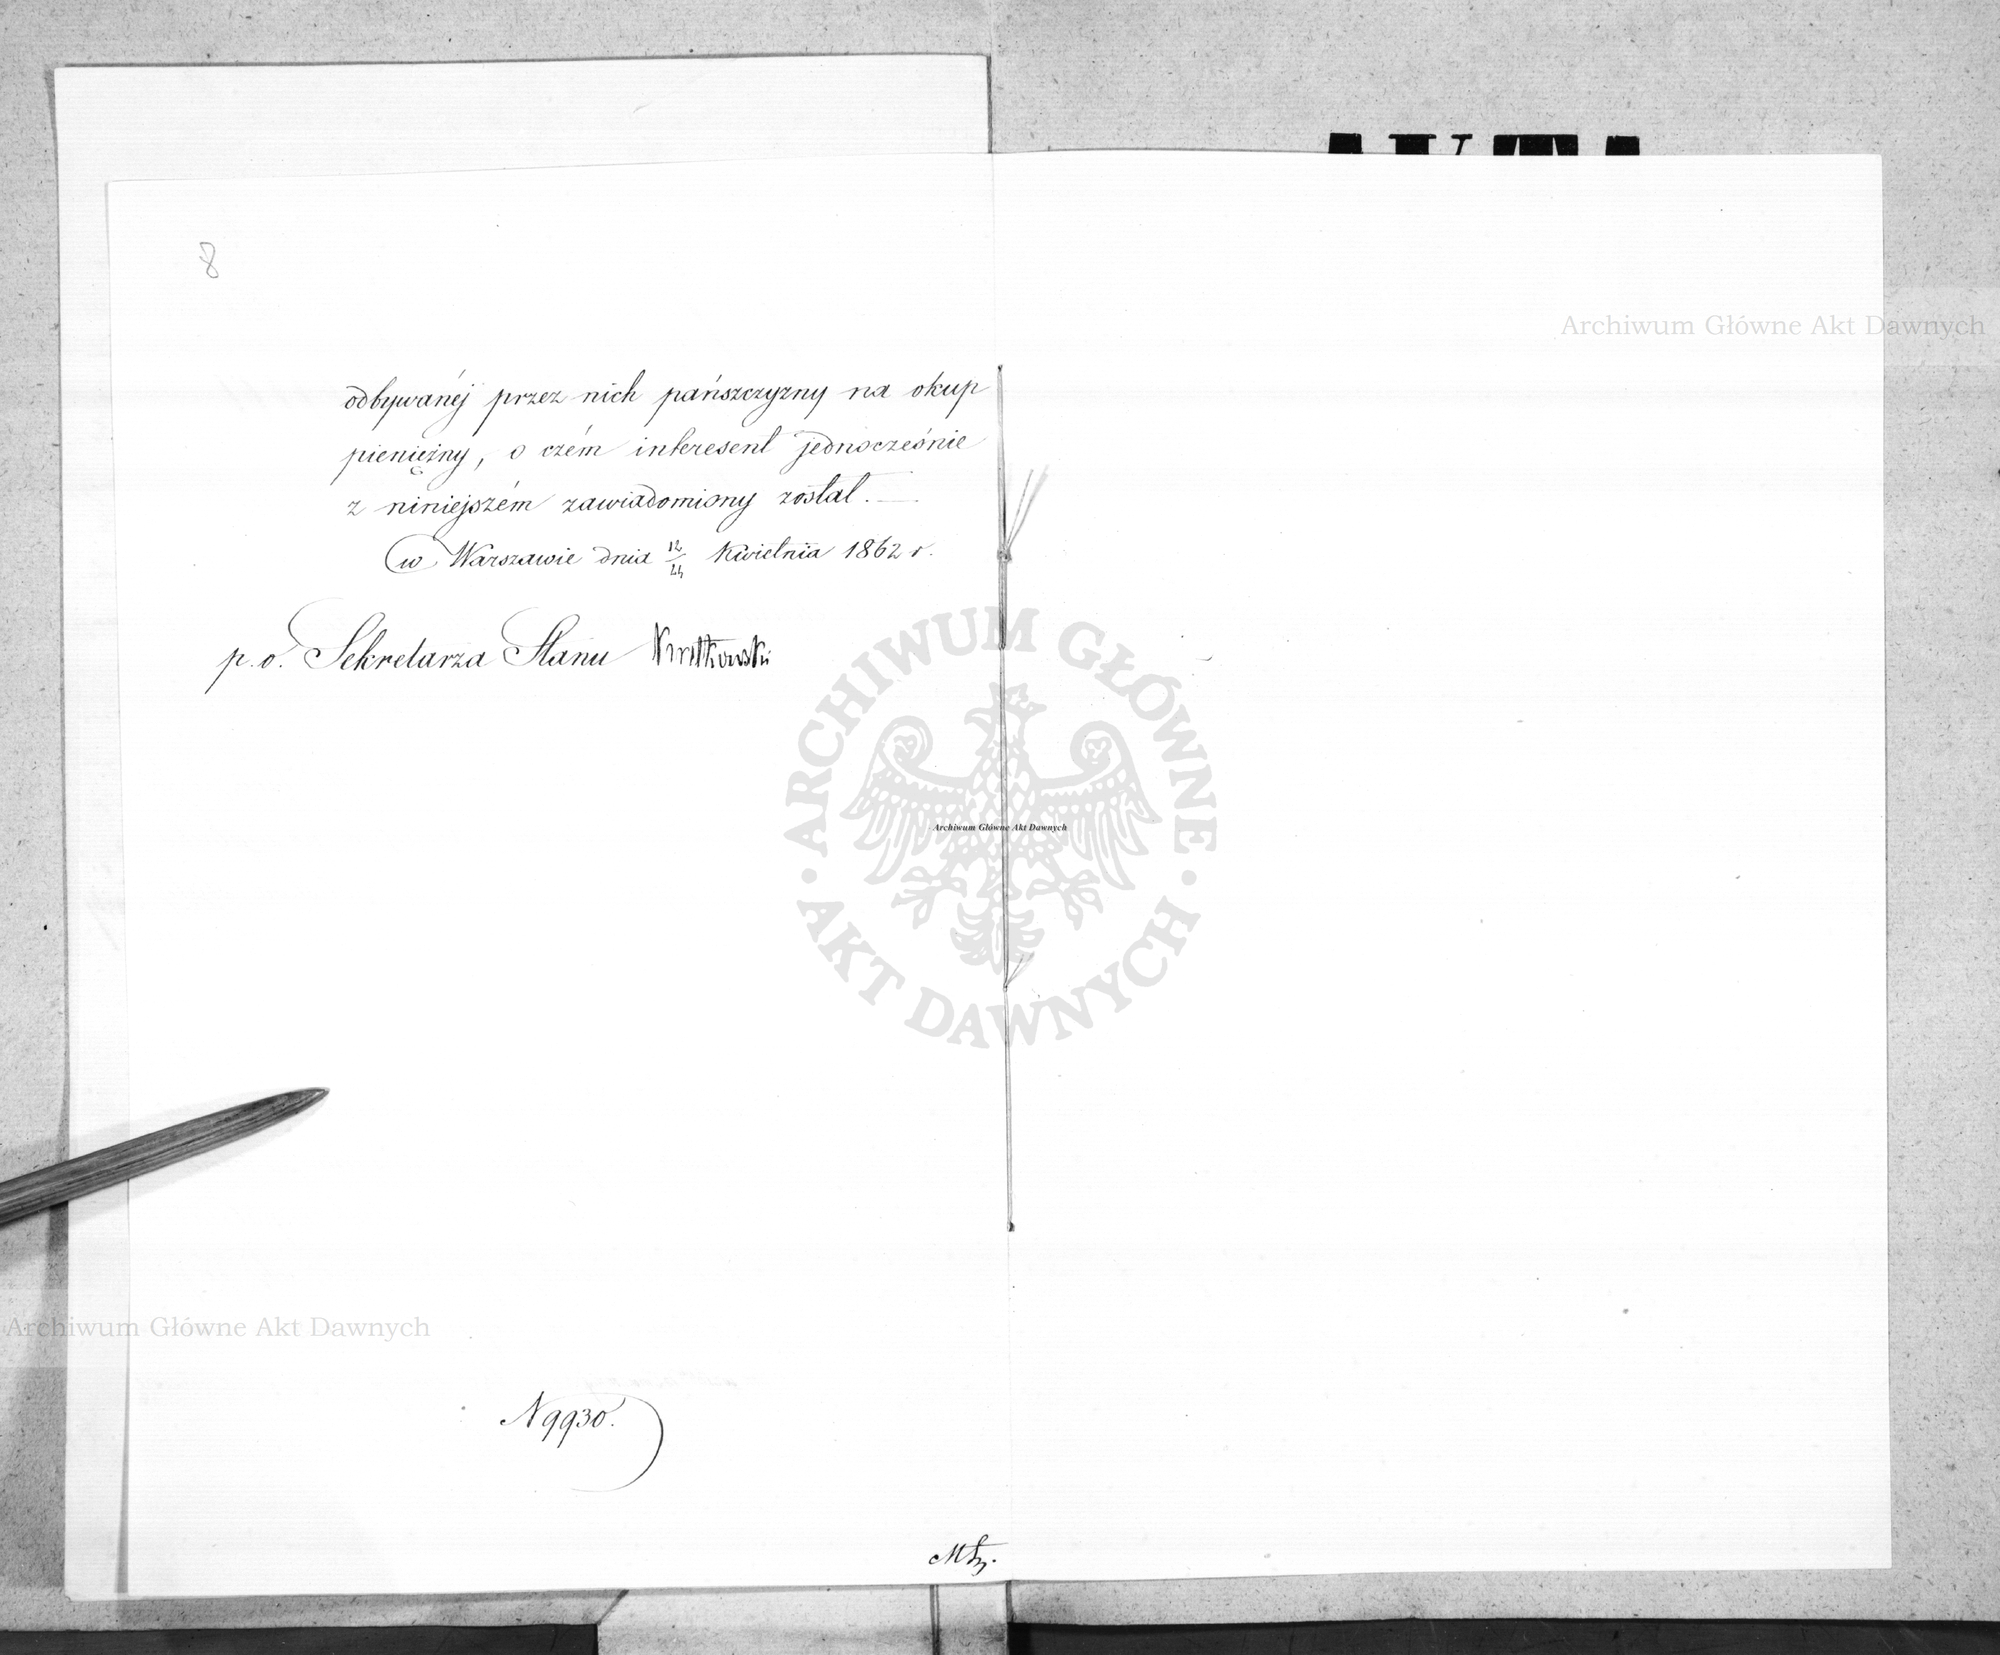 AKTA
8
odbywanéj przez nich pańszczyzny na okup
pieniężny, o czém interesent jednocześnie
z niniejszém zawiadomiony został.
w Warszawie dnia 12/24 Kwietnia 1862 r.
p. o. Sekretarza Stanu
N 9930.
Archiwum Główne Akt Dawnych
ARCHIWUM GŁÓWNE
AKT DAWNYCH
Archiwum Główne Akt Dawnych
Archiwum Główne Akt Dawnych